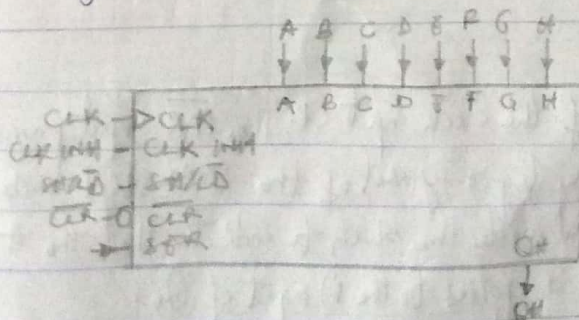 A B C D E F G H
A B C D E F G H
CLK CLK
CLK INH CLK INH
SH/L̅D̅ SH/L̅D̅
C̅L̅R̅ C̅L̅R̅
SER
QH
QH